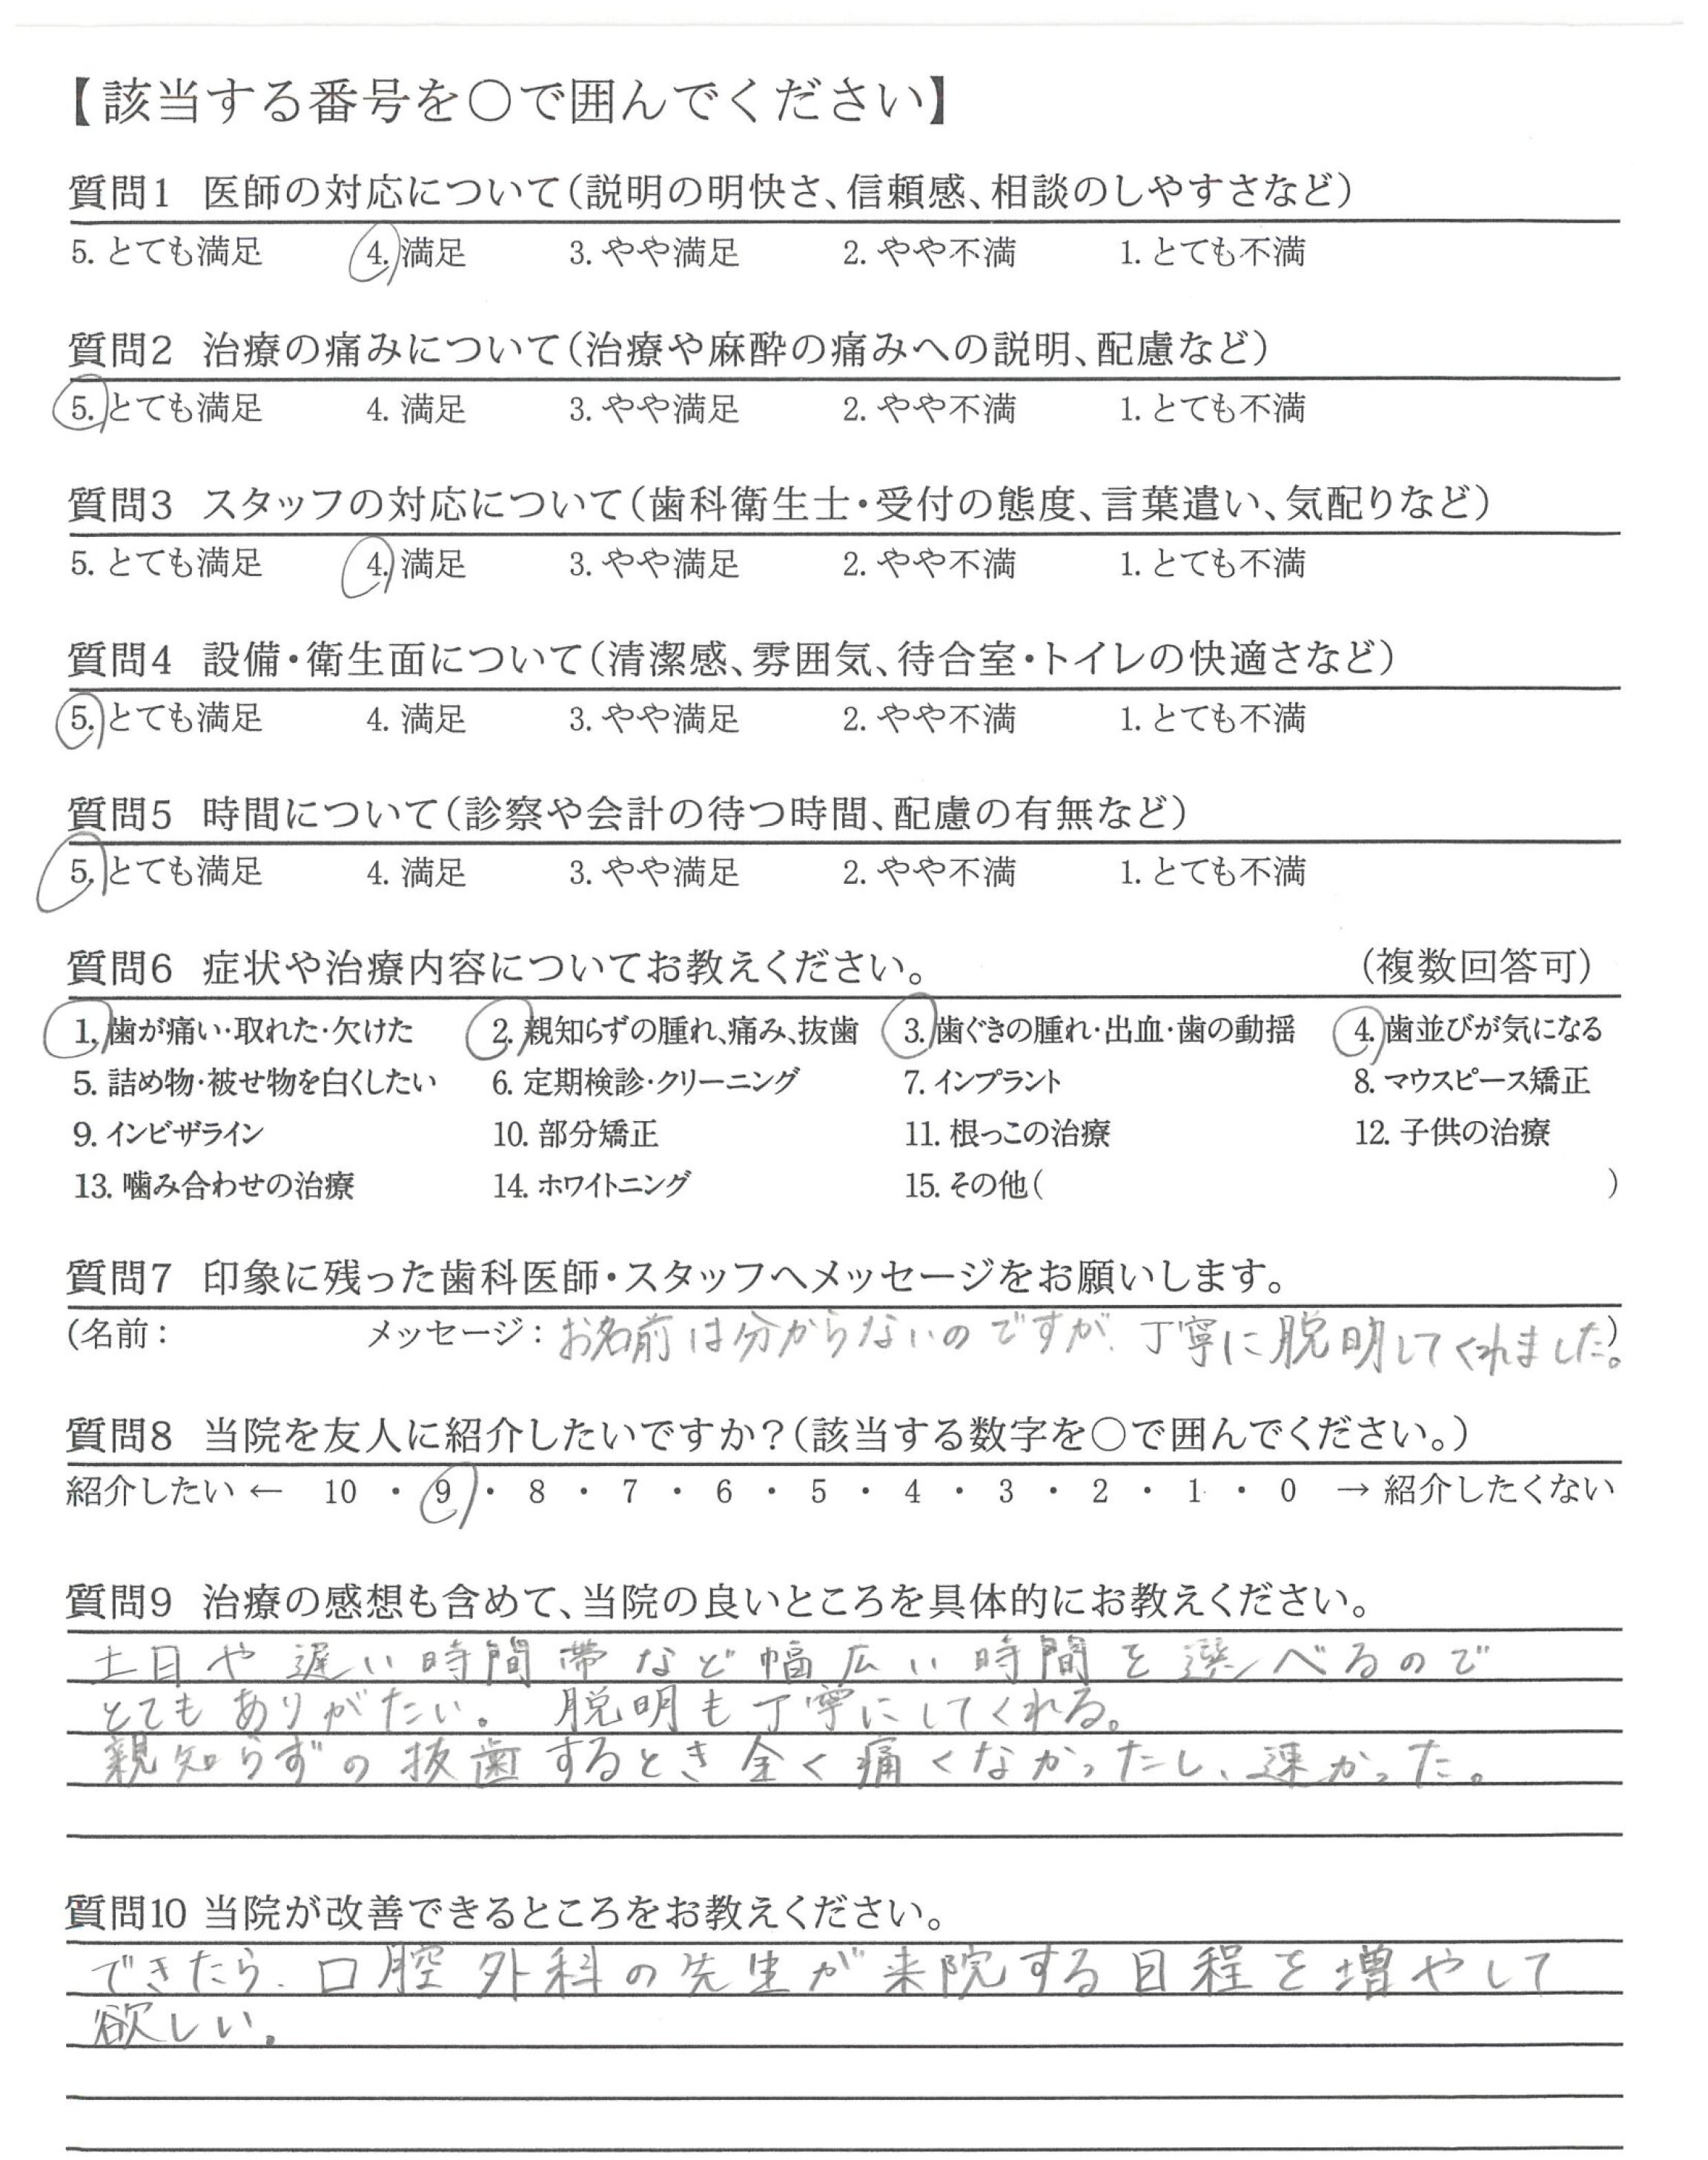 【該当する番号を○で囲んでください】
質問1 医師の対応について(説明の明快さ、信頼感、相談のしやすさなど)
5. とても満足 4. 満足 3. やや満足 2. やや不満 1. とても不満
質問2 治療の痛みについて(治療や麻酔の痛みへの説明、配慮など)
5. とても満足 4. 満足 3. やや満足 2. やや不満 1. とても不満
質問3 スタッフの対応について(歯科衛生士・受付の態度、言葉遣い、気配りなど)
5. とても満足 4. 満足 3. やや満足 2. やや不満 1. とても不満
質問4 設備・衛生面について(清潔感、雰囲気、待合室・トイレの快適さなど)
5. とても満足 4. 満足 3. やや満足 2. やや不満 1. とても不満
質問5 時間について(診察や会計の待つ時間、配慮の有無など)
5. とても満足 4. 満足 3. やや満足 2. やや不満 1. とても不満
質問6 症状や治療内容についてお教えください。 (複数回答可)
1. 歯が痛い・取れた・欠けた 2. 親知らずの腫れ、痛み、抜歯 3. 歯ぐきの腫れ・出血・歯の動揺 4. 歯並びが気になる
5. 詰め物・被せ物を白くしたい 6. 定期検診・クリーニング 7. インプラント 8. マウスピース矯正
9. インビザライン 10. 部分矯正 11. 根っこの治療 12. 子供の治療
13. 噛み合わせの治療 14. ホワイトニング 15. その他( )
質問7 印象に残った歯科医師・スタッフへメッセージをお願いします。
(名前: メッセージ: お名前は分からないのですが、丁寧に脱明してくれました。)
質問8 当院を友人に紹介したいですか?(該当する数字を○で囲んでください。)
紹介したい ← 10 ・ 9 ・ 8 ・ 7 ・ 6 ・ 5 ・ 4 ・ 3 ・ 2 ・ 1 ・ 0 → 紹介したくない
質問9 治療の感想も含めて、当院の良いところを具体的にお教えください。
土日や遅い時間帯など幅広い時間を選べるので
とてもありがたい。 脱明も丁寧にしてくれる。
親知らずの抜歯するとき全く痛くなかったし、速かった。
質問10 当院が改善できるところをお教えください。
できたら、口腔外科の先生が来院する日程を増やして
欲しい。